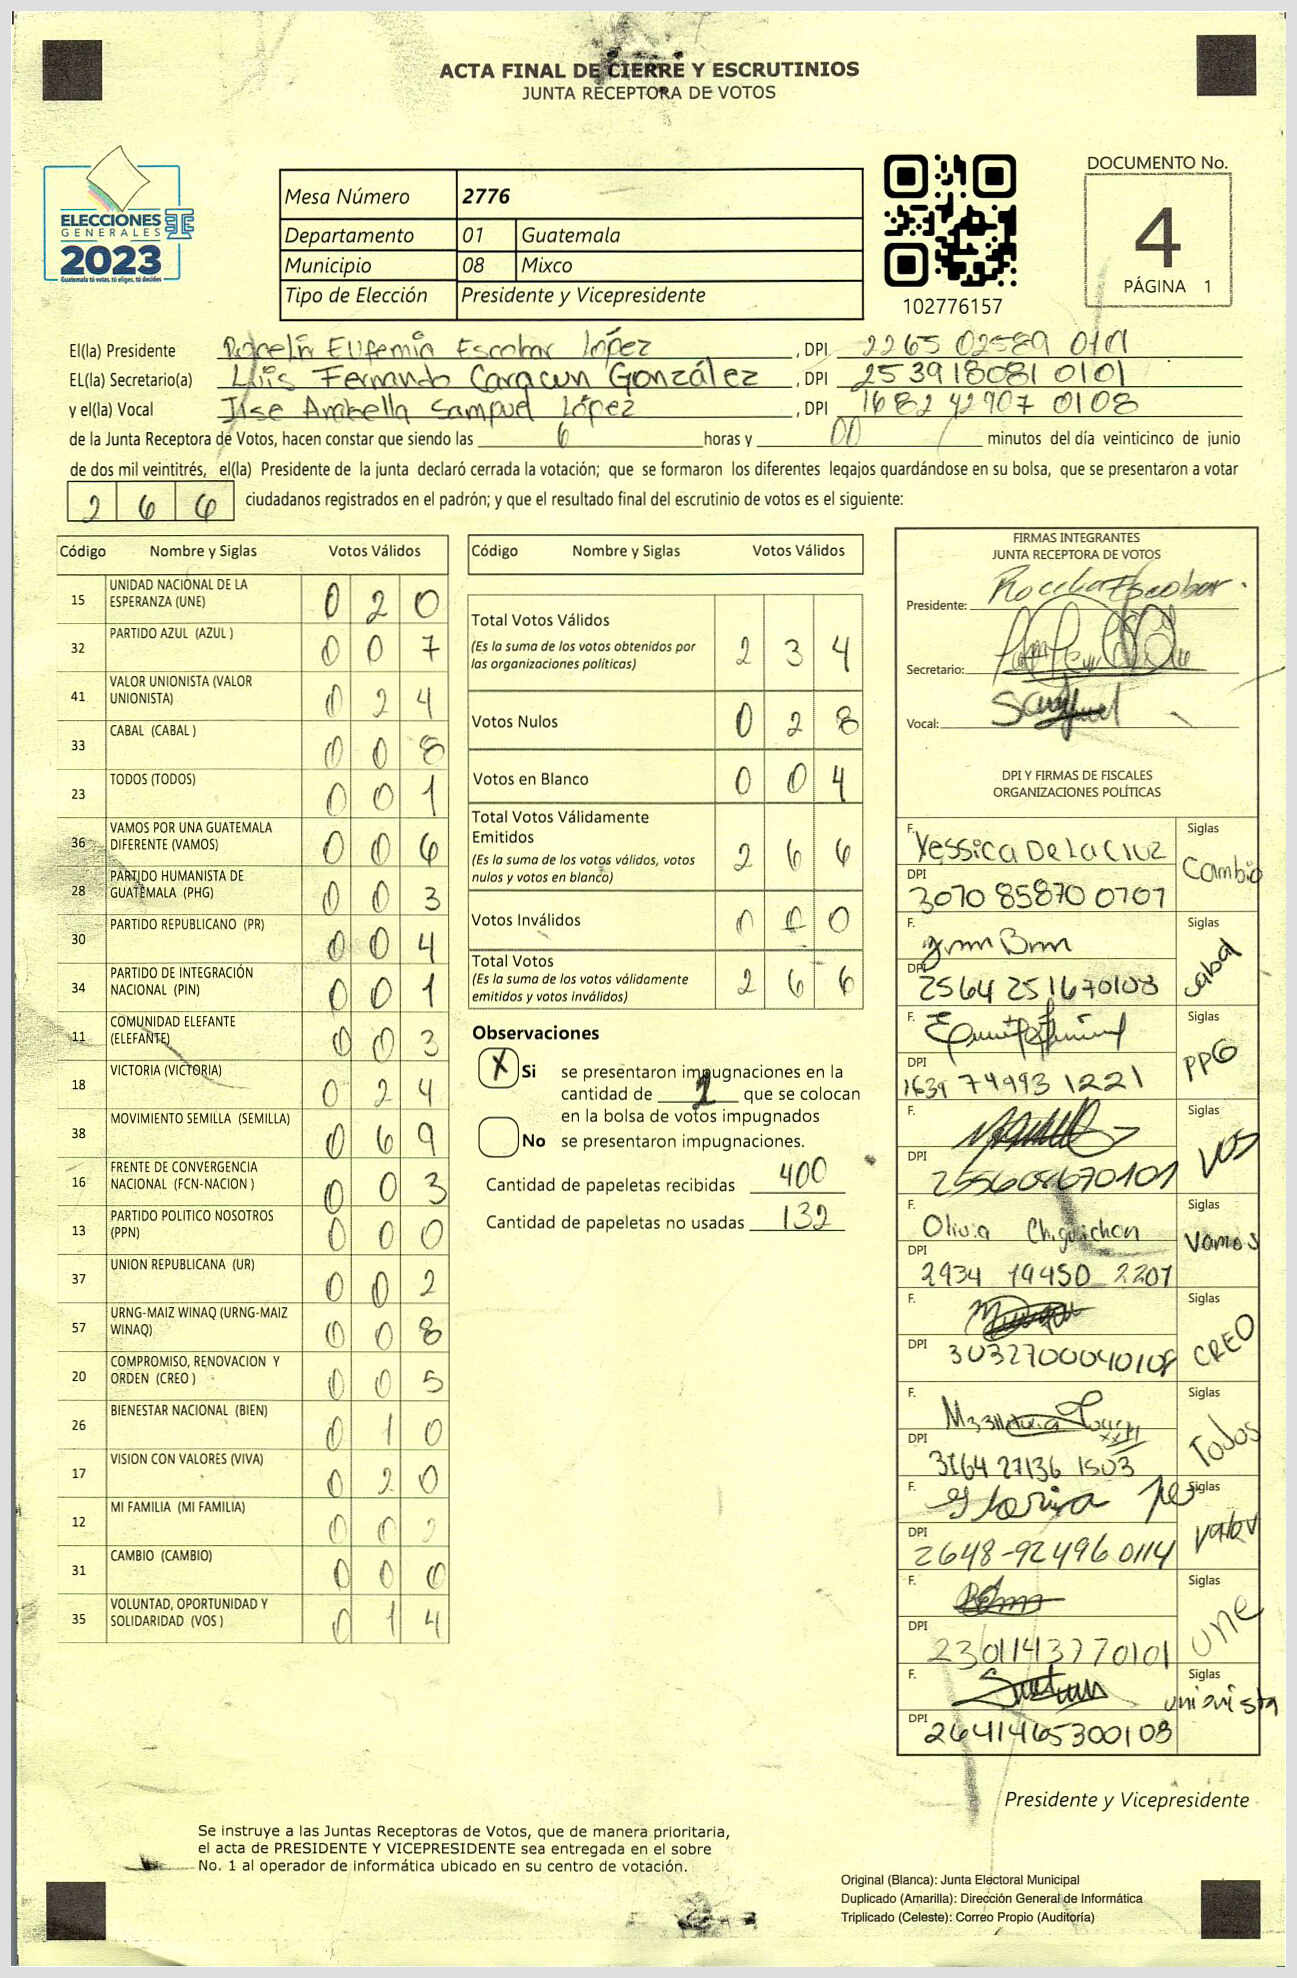 ACTA FINAL DE CIERRE Y ESCRUTINIOS
JUNTA RECEPTORA DE VOTOS
ELECCIONES
GENERALES
2023
Guatemala tú votas, tú eliges, tú decides
Mesa Número 2776
Departamento 01 Guatemala
Municipio 08 Mixco
Tipo de Elección Presidente y Vicepresidente
102776157
DOCUMENTO No.
4
PÁGINA 1
El(la) Presidente Eufemia Escobar López , DPI 2265 02589 0101
EL(la) Secretario(a) Luis Fernando Caracun González , DPI 253918081 0101
y el(la) Vocal Ilse Arabella Sampuel López , DPI 1682 42907 0108
de la Junta Receptora de Votos, hacen constar que siendo las 6 horas y 00 minutos del día veinticinco de junio
de dos mil veintitrés, el(la) Presidente de la junta declaró cerrada la votación; que se formaron los diferentes legajos guardándose en su bolsa, que se presentaron a votar
2 6 6 ciudadanos registrados en el padrón; y que el resultado final del escrutinio de votos es el siguiente:
Código Nombre y Siglas Votos Válidos
15 UNIDAD NACIONAL DE LA ESPERANZA (UNE) 0 2 0
32 PARTIDO AZUL (AZUL ) 0 0 7
41 VALOR UNIONISTA (VALOR UNIONISTA) 0 2 4
33 CABAL (CABAL ) 0 0 8
23 TODOS (TODOS) 0 0 1
36 VAMOS POR UNA GUATEMALA DIFERENTE (VAMOS) 0 0 6
28 PARTIDO HUMANISTA DE GUATEMALA (PHG) 0 0 3
30 PARTIDO REPUBLICANO (PR) 0 0 4
34 PARTIDO DE INTEGRACIÓN NACIONAL (PIN) 0 0 1
11 COMUNIDAD ELEFANTE (ELEFANTE) 0 0 3
18 VICTORIA (VICTORIA) 0 2 4
38 MOVIMIENTO SEMILLA (SEMILLA) 0 6 9
16 FRENTE DE CONVERGENCIA NACIONAL (FCN-NACION ) 0 0 3
13 PARTIDO POLITICO NOSOTROS (PPN) 0 0 0
37 UNION REPUBLICANA (UR) 0 0 2
57 URNG-MAIZ WINAQ (URNG-MAIZ WINAQ) 0 0 8
20 COMPROMISO, RENOVACION Y ORDEN (CREO ) 0 0 5
26 BIENESTAR NACIONAL (BIEN) 0 1 0
17 VISION CON VALORES (VIVA) 0 2 0
12 MI FAMILIA (MI FAMILIA) 0 0 2
31 CAMBIO (CAMBIO) 0 0 0
35 VOLUNTAD, OPORTUNIDAD Y SOLIDARIDAD (VOS ) 0 1 4
Código Nombre y Siglas Votos Válidos
Total Votos Válidos 2 3 4
(Es la suma de los votos obtenidos por
las organizaciones políticas)
Votos Nulos 0 2 8
Votos en Blanco 0 0 4
Total Votos Válidamente
Emitidos 2 6 6
(Es la suma de los votos válidos, votos
nulos y votos en blanco)
Votos Inválidos 0 0 0
Total Votos 2 6 6
(Es la suma de los votos válidamente
emitidos y votos inválidos)
Observaciones
X Si se presentaron impugnaciones en la
cantidad de 2 que se colocan
en la bolsa de votos impugnados
No se presentaron impugnaciones.
Cantidad de papeletas recibidas 400
Cantidad de papeletas no usadas 132
FIRMAS INTEGRANTES
JUNTA RECEPTORA DE VOTOS
Presidente: Escobar
Secretario:
Vocal:
DPI Y FIRMAS DE FISCALES
ORGANIZACIONES POLÍTICAS
F. Yessica De la Cruz Siglas
DPI 3070 85870 0707 Cambio
F. Siglas
DPI 2564 25167 0108 Cabal
F. Siglas
DPI 1639 74993 1221 PPG
F. Siglas
DPI 255608670101 VOS
F. Olivia Chiguichon Siglas
DPI 2934 19450 2207 Vamos
F. Siglas
DPI 3032700040108 CREO
F. Siglas
DPI 3164 27136 1503 Todos
F. Siglas
DPI 2648-92496 0114 Valor
F. Siglas
DPI 2301143770101 UNE
F. Siglas
DPI 2641465300108 unionista
Presidente y Vicepresidente
Se instruye a las Juntas Receptoras de Votos, que de manera prioritaria,
el acta de PRESIDENTE Y VICEPRESIDENTE sea entregada en el sobre
No. 1 al operador de informática ubicado en su centro de votación.
Original (Blanca): Junta Electoral Municipal
Duplicado (Amarilla): Dirección General de Informática
Triplicado (Celeste): Correo Propio (Auditoría)